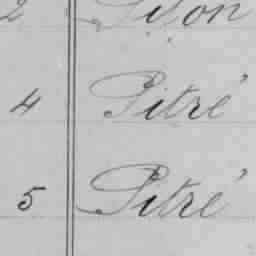 2
4 Pitré
5 Pitré